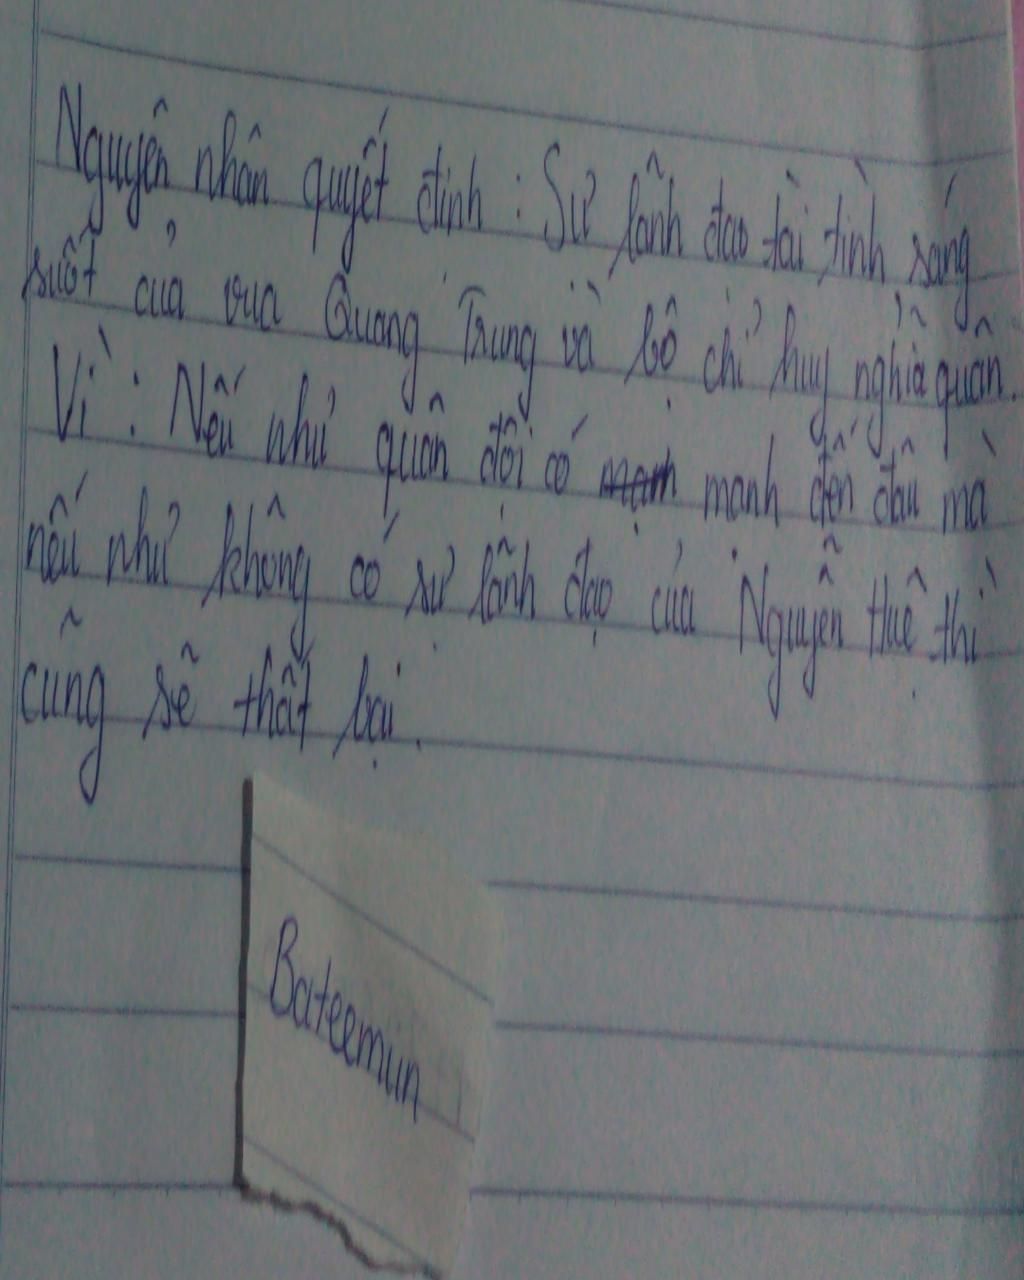 Nguyên nhân quyết định : Sự lãnh đạo tài tình sáng
suốt của vua Quang Trung và bộ chỉ huy nghĩa quân.
Vì : Nếu như quân đội có mạnh đến đâu mà
nếu như không có sự lãnh đạo của Nguyễn Huệ thì
cũng sẽ thất bại.
Bateemun